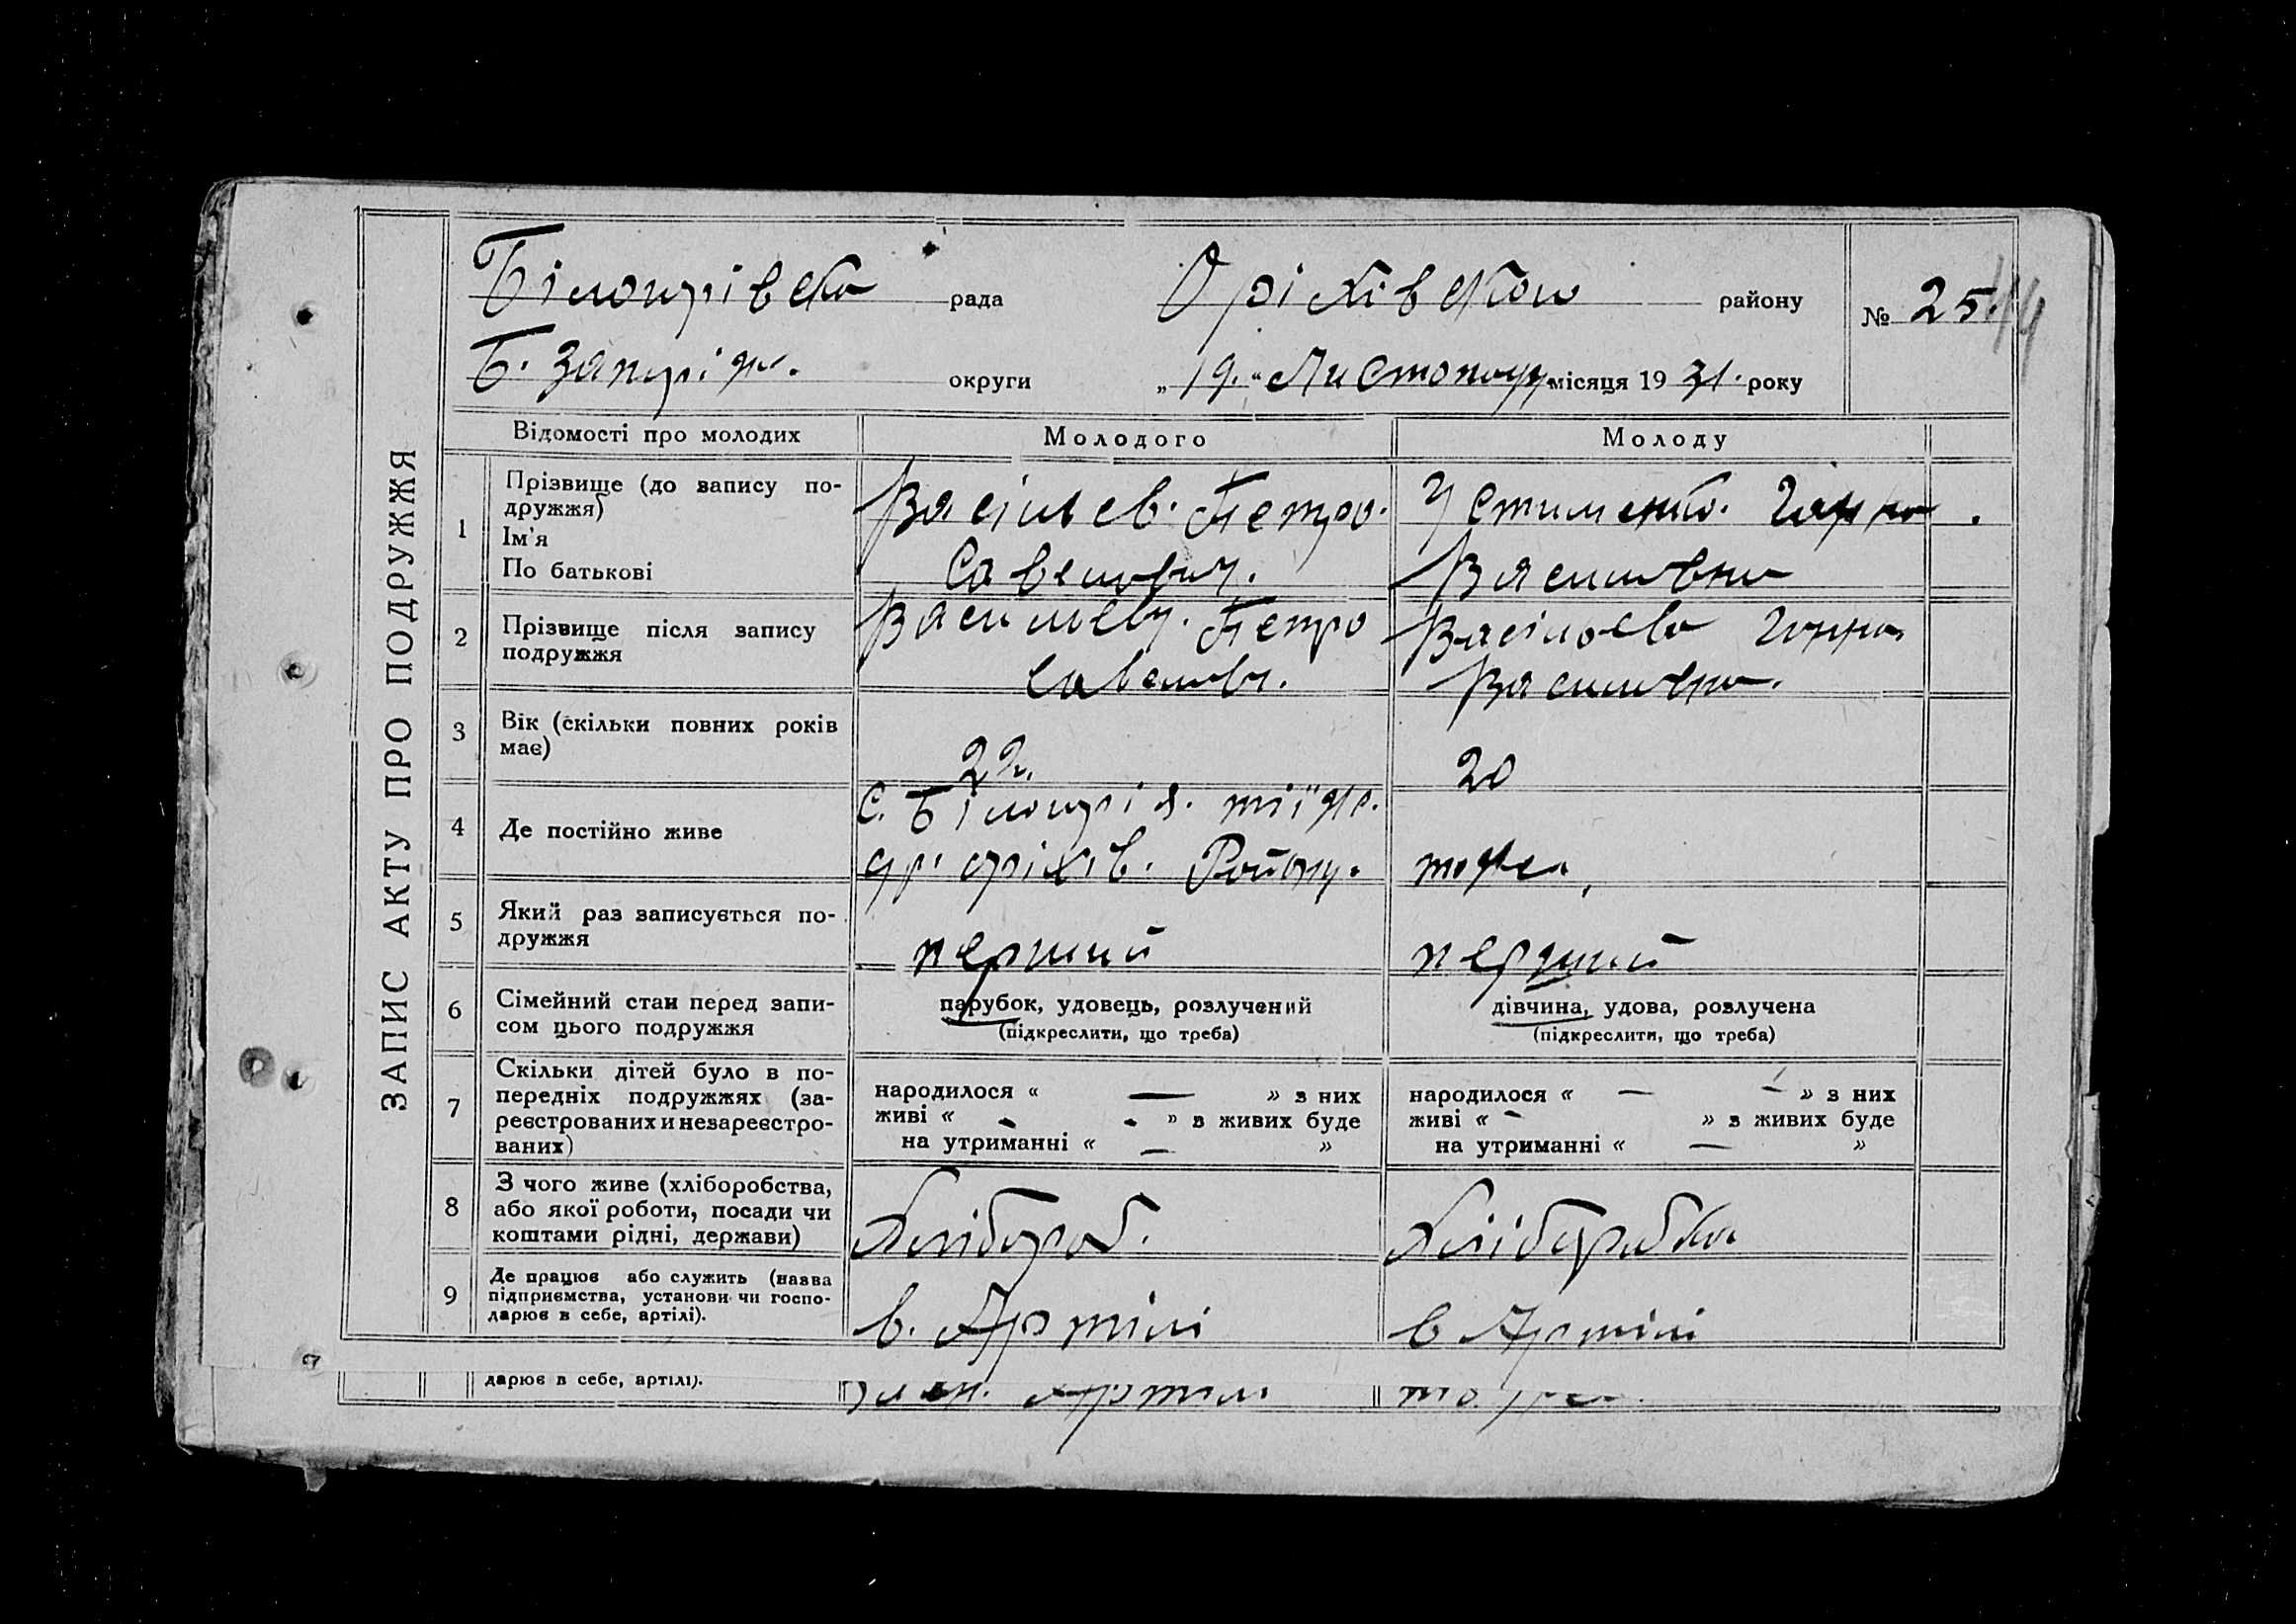 ЗАПИС АКТУ ПРО ПОДРУЖЖЯ
Білогірівська рада Оріхівського району № 25
Б. Запоріж. округи „19.“ Листопад місяця 1931. року
Відомості про молодих Молодого Молоду
1 Прізвище (до запису по-
дружжя)
Ім'я
По батькові
Васільєв. Петро.
Савелович.
Устименко. Ганна.
Василівна
2 Прізвище після запису
подружжя
Петро
Васільєва Ганна
Василівна.
3 Вік (скільки повних років
має)
22. 20
4 Де постійно живе
с. Білогір'я. тії ж.
оріхів. Району. тоже.
5 Який раз записується по-
дружжя
перший перший
6 Сімейний стан перед запи-
сом цього подружжя
парубок, удовець, розлучений
(підкреслити, що треба)
дівчина, удова, розлучена
(підкреслити, що треба)
7 Скільки дітей було в по-
передніх подружжях (за-
реєстрованих и незареєстро-
ваних)
народилося « — » з них
живі « - - » з живих буде
на утриманні « — »
народилося « — — » з них
живі « - » з живих буде
на утриманні « — »
8 З чого живе (хліборобства,
або якої роботи, посади чи
коштами рідні, держави)
Хлібороб. Хліборобка
9 Де працює або служить (назва
підприємства, установи чи госпо-
дарює в себе, артілі).
в. Артілі в Артілі
дарює в себе, артілі).
член. Артілі тоже.